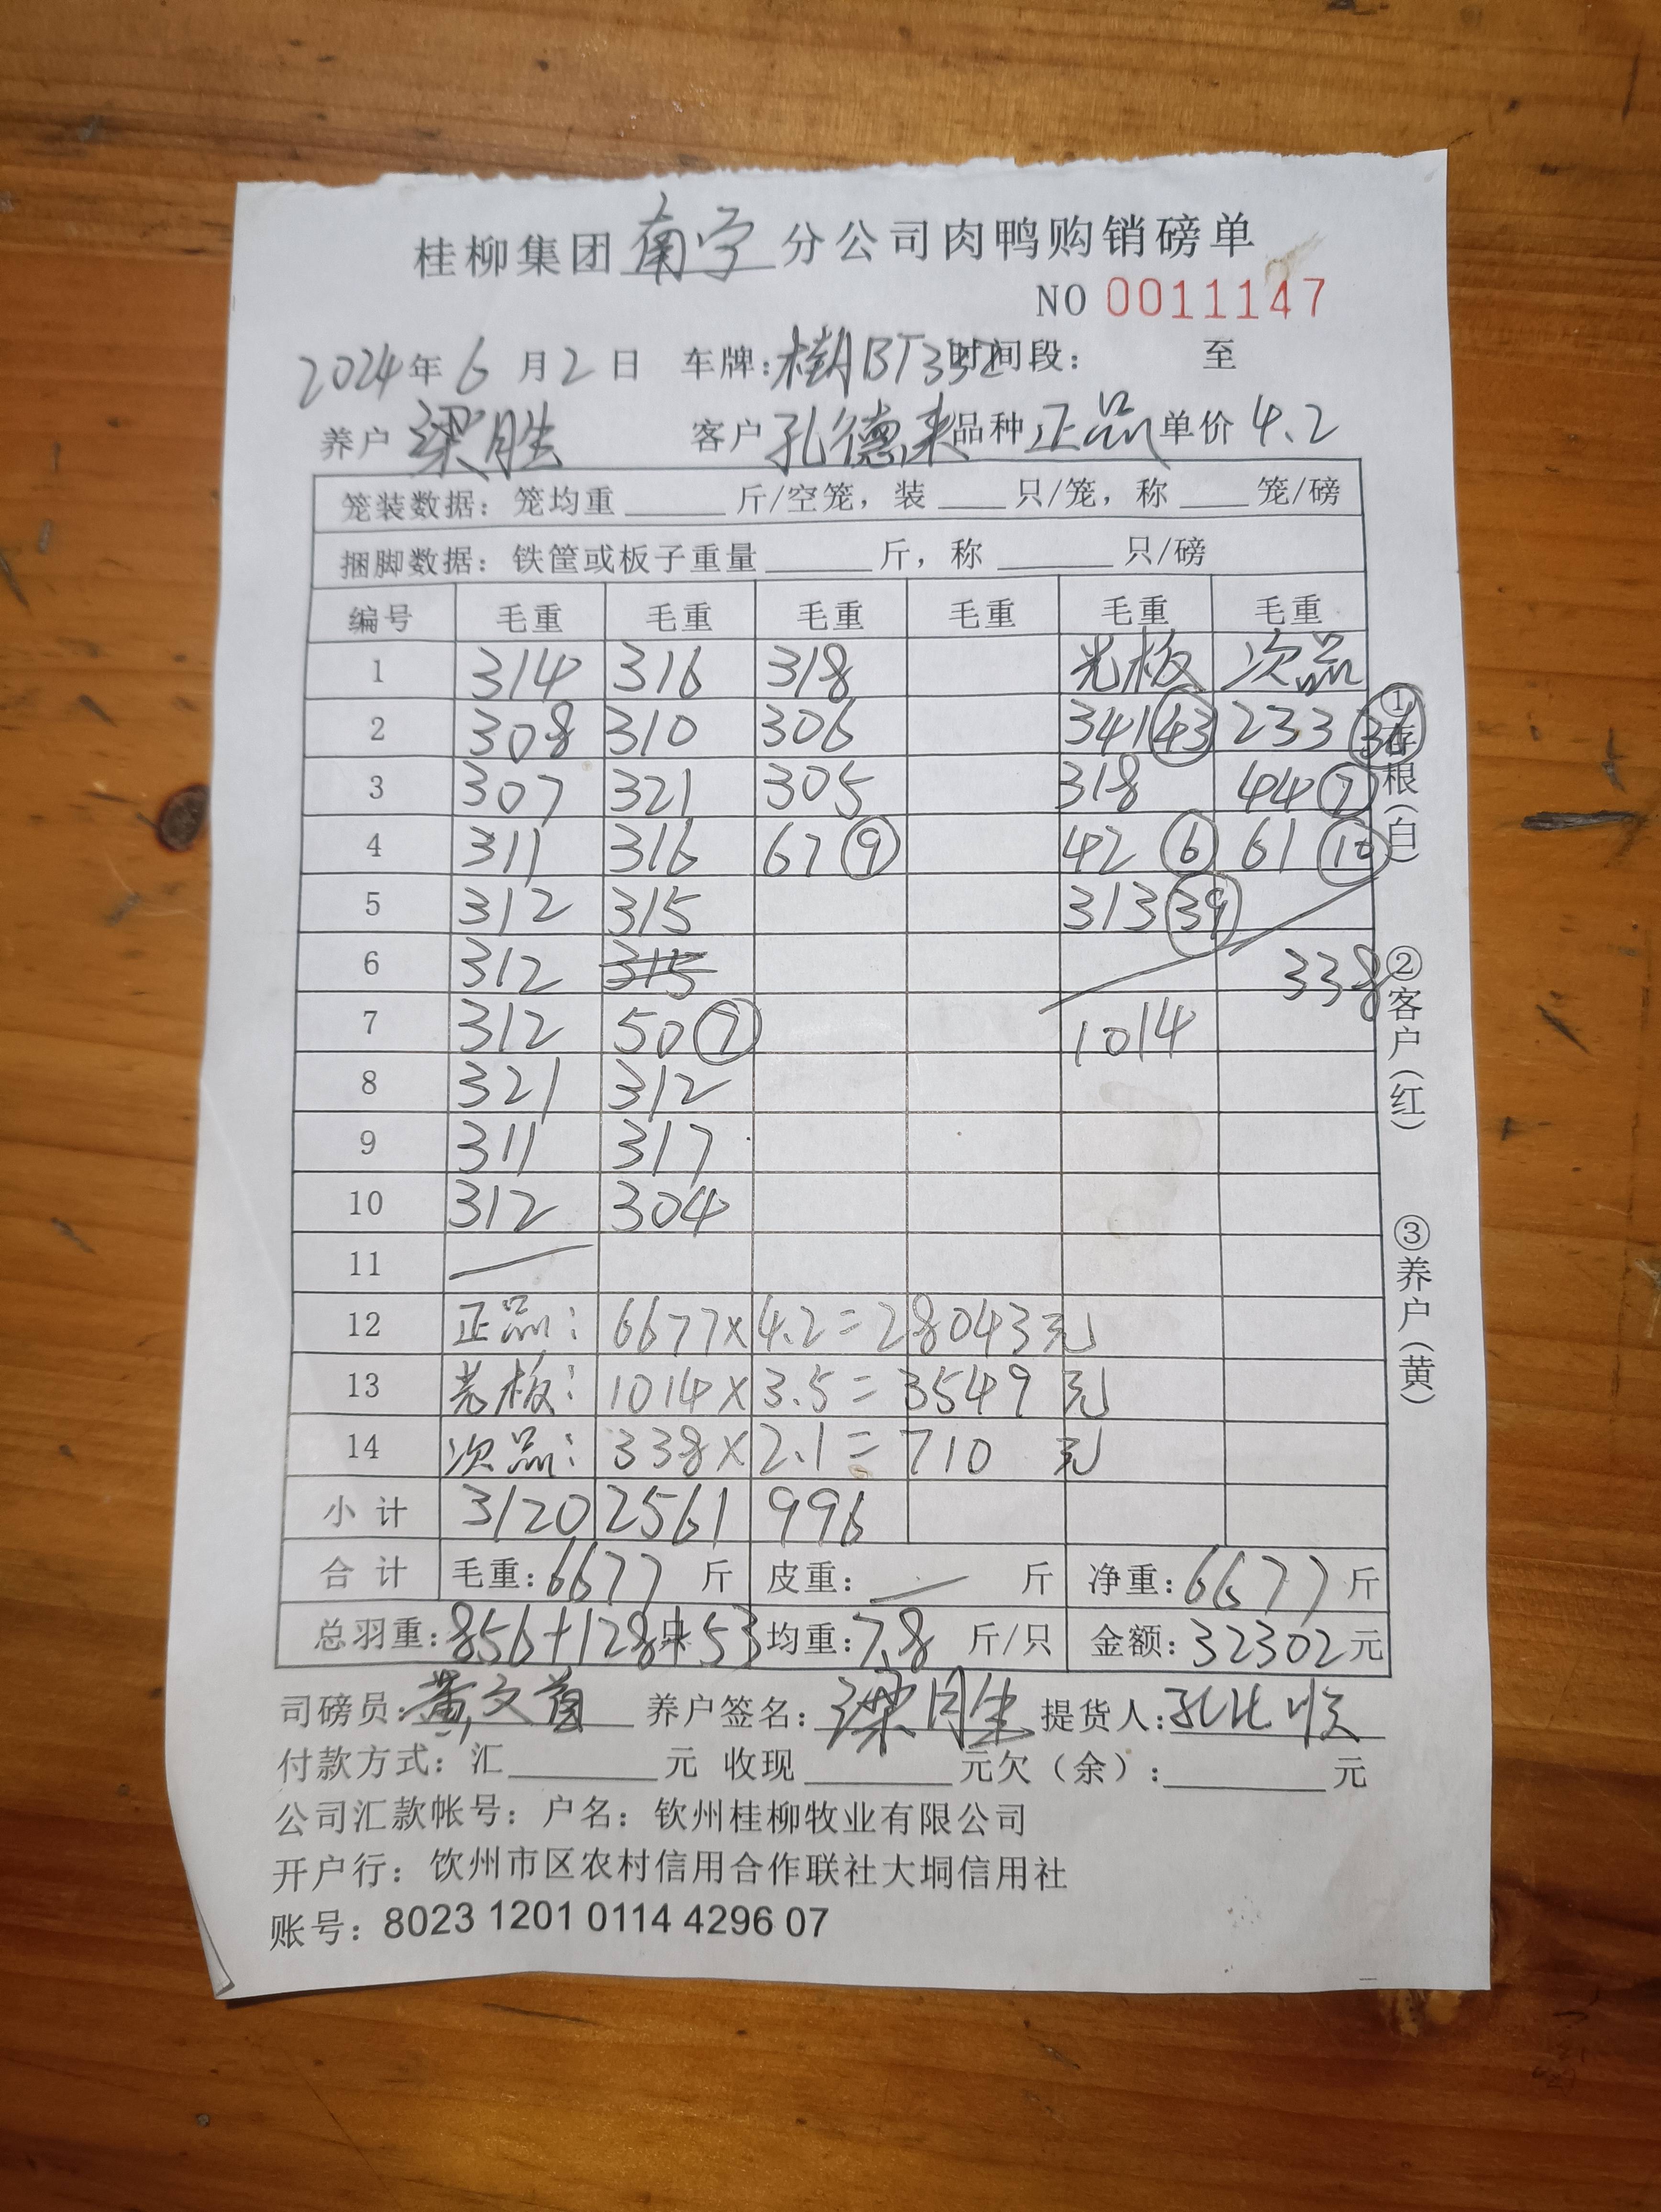 桂柳集团南宁分公司肉鸭购销磅单
NO 0011147
2024年6月2日 车牌:桂ABT332 时间段: 至
养户 梁胜 客户 孔德来 品种 正品 单价 4.2
笼装数据: 笼均重 斤/空笼, 装 只/笼, 称 笼/磅
捆脚数据: 铁筐或板子重量 斤, 称 只/磅
编号 毛重 毛重 毛重 毛重 毛重 毛重
1 314 316 318 光板 次品
2 308 310 306 341 43 233 36
3 307 321 305 318 44 7
4 311 316 67 9 42 6 61 10
5 312 315 313 39
6 312 315 338
7 312 50 7 1014
8 321 312
9 311 317
10 312 304
11
12 正品: 6677×4.2=28043元
13 光板: 1014×3.5=3549元
14 次品: 338×2.1=710元
小计 3120 2561 996
合计 毛重:6677斤 皮重: — 斤 净重:6677斤
总羽重:856+128+53只 均重:7.8斤/只 金额:32302元
司磅员:黄文 养户签名:梁胜 提货人:孔 顺
付款方式: 汇 元 收现 元欠(余): 元
公司汇款帐号: 户名: 钦州桂柳牧业有限公司
开户行: 饮州市区农村信用合作联社大垌信用社
账号: 8023 1201 0114 4296 07
①存根(白)
②客户(红)
③养户(黄)